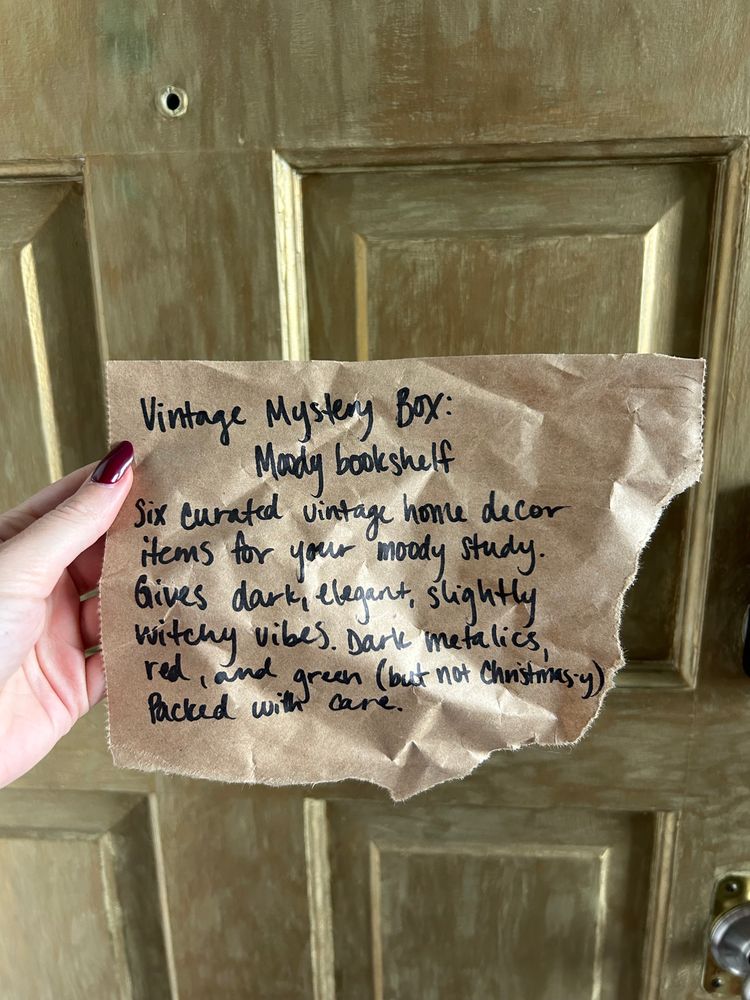 Vintage Mystery Box:
Moody bookshelf
Six curated vintage home decor
items for your moody study.
Gives dark, elegant, slightly
witchy vibes. Dark metalics,
red, and green (but not Christmas-y)
Packed with care.